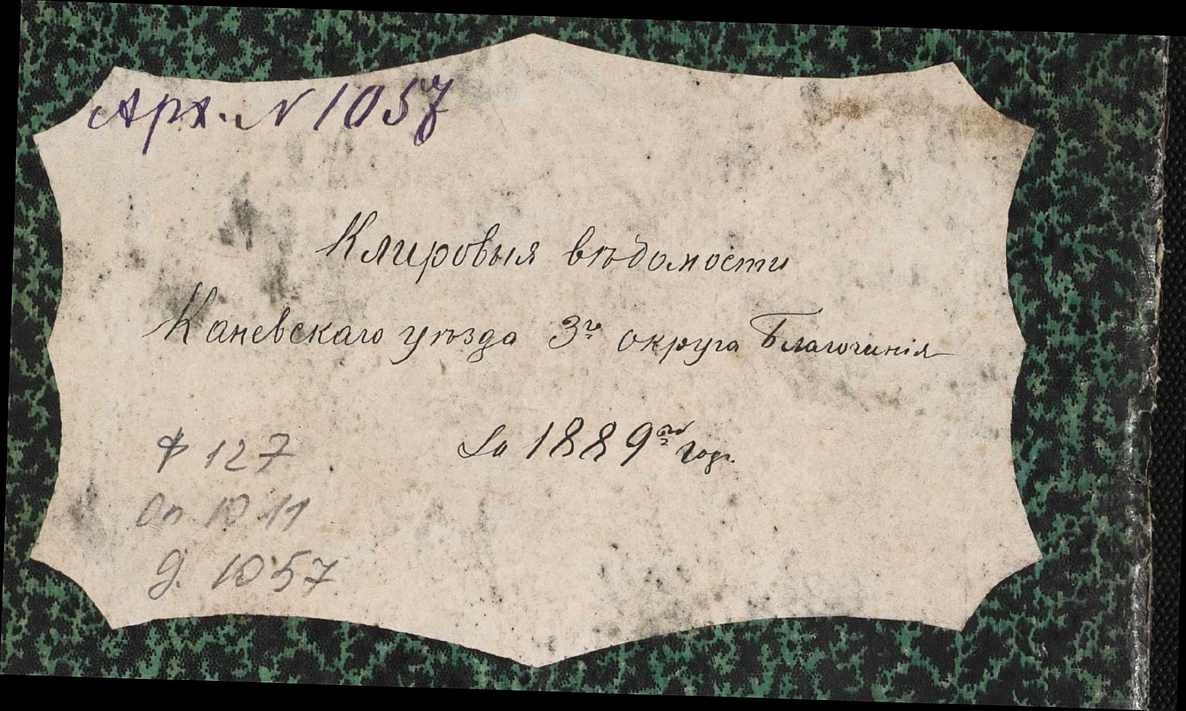 Арх. N 1057
Клировыя вѣдомости
Каневскаго уѣзда 3го округа Благочинія
За 1889ый годъ.
Ф 127
Оп 1011
д. 1057